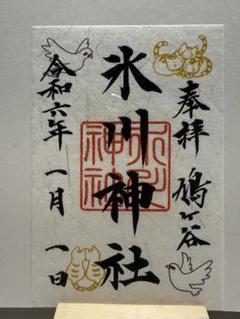 奉拝 鳩ヶ谷
氷川神社
令和六年 一月 一日
氷川神社